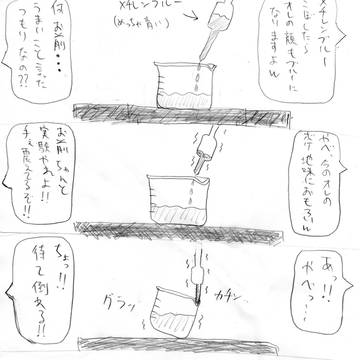 メチレンブルー
こぼしたら
オレの顔もブルーに
なりますよw
メチレンブルー
(めっちゃ青い)
何お前・・・
うまいこと言った
つもりなの??
やべ、今のオレの
ボケ地味におもろいw
お前ちゃんと
実験やれよ!!
手ぇ震えるぞ!!
あっ!!
やべっ…
カチン
グラッ
ちょっ!!
待て倒れる!!